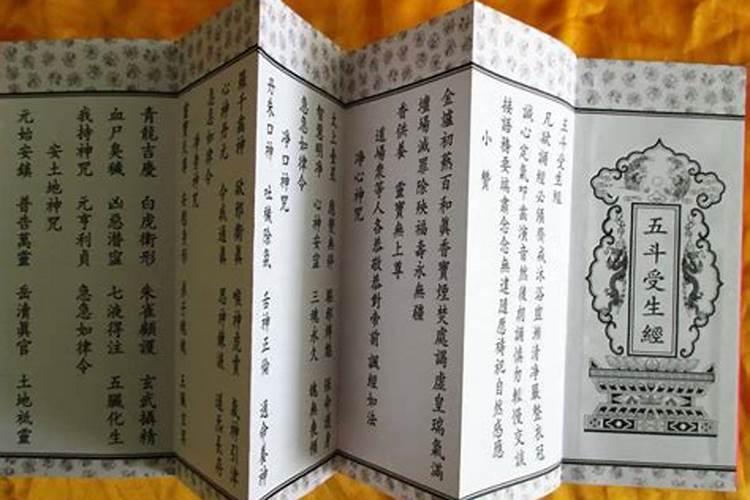 五斗受生經
五斗受生經
凡欲誦經必須齋戒沐浴盥漱清淨嚴整衣冠
誠心定氣叩齒演音然後朗誦慎勿輕慢交談
接語務要端肅念念無違隨應禱祀自然感應
小贊
金爐初爇百和真香寶煙焚處謁虛皇瑞氣滿
壇場滅罪除殃福壽永無疆
香供養 靈寶無上尊
道場衆等人各恭敬恭對帝前 誦經如法
淨心神咒
太上台星 應變無停 驅邪縛魅 保命護身
智慧明淨 心神安寧 三魂永久 魄無喪傾
急急如律令
淨口神咒
丹朱口神 吐穢除氛 舌神正倫 通命養神
羅千齒神 卻邪衛真 喉神虎賁 炁神引津
心神丹元 令我通真 思神鍊液 道炁長存
急急如律令
淨身神咒
靈寶天尊 安慰身形 弟子魂魄 五臟玄冥
青龍吉慶 白虎衛形 朱雀顧護 玄武攝精
血尸臭穢 凶惡潛寧 七液得注 五臟化生
我持神咒 元亨利貞 急急如律令
安土地神咒
元始安鎮 普告萬靈 岳瀆真官 土地祗靈